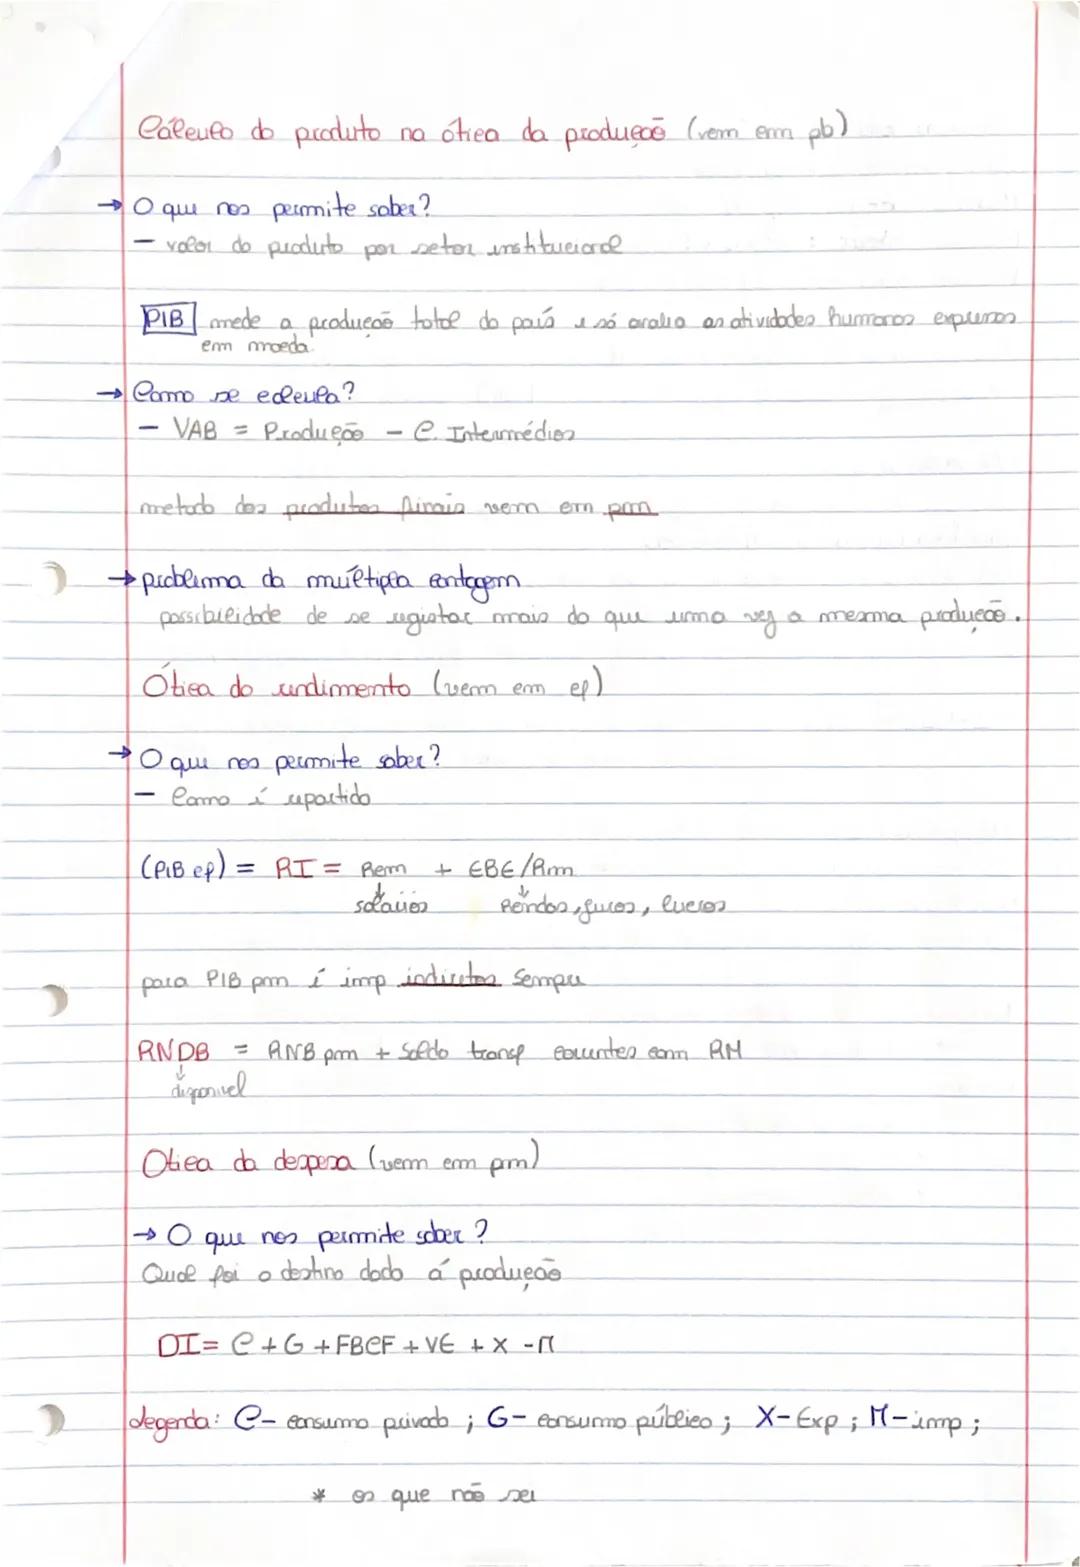 Cálculo do produto na ótica da produção (vem em pb)
→ O que nos permite saber?
- valor do produto por setor institucional
PIB mede a produção total do país e só avalia as atividades humanas expressas
em moeda.
→ Como se calcula?
- VAB = Produção - C. Intermédios
metodo dos produtos finais vem em pm
→ problema da multipla contagem
possibilidade de se registar mais do que uma vez a mesma produção.
Ótica do rendimento (vem em cf)
→ O que nos permite saber?
- Como é repartido
(PIB cf) = RI = Rem + EBE/Rm
↓ ↓
salários Rendas, juros, lucros
para PIB pm é imp indiretos sempre
RNDB = RNB pm + Saldo transf correntes com RM
↓
disponivel
Otica da despesa (vem em pm)
→ O que nos permite saber?
Qual foi o destino dado á produção
DI = C + G + FBCF + VE + X - M
Legenda: C- consumo privado ; G- consumo público ; X- Exp ; M- imp ;
* os que não sei